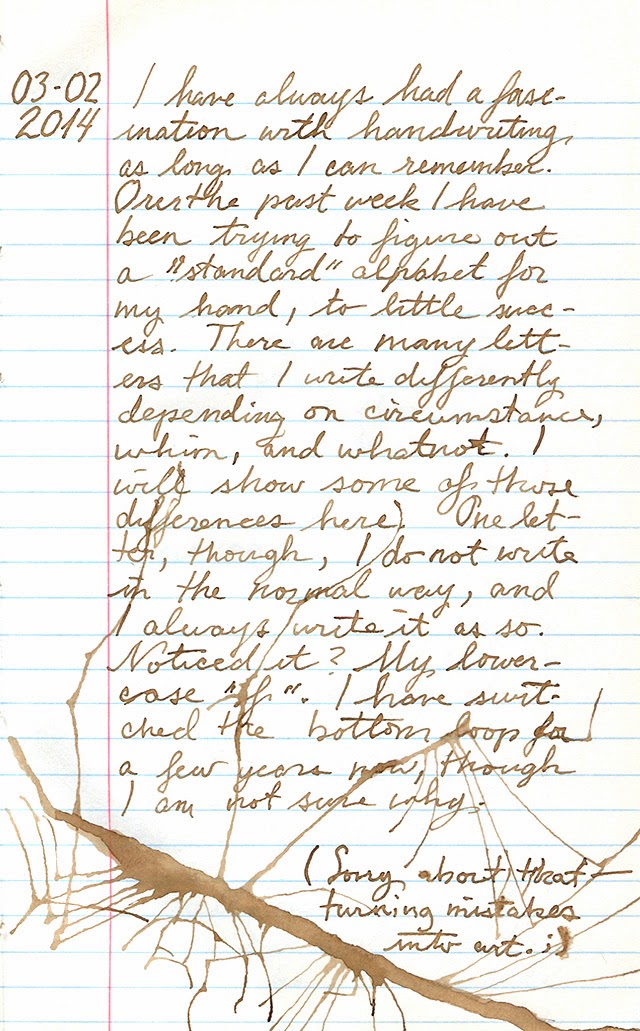 03-02
2014
I have always had a fasc-
ination with handwriting,
as long as I can remember.
Over the past week I have
been trying to figure out
a "standard" alphabet for
my hand, to little succ-
ess. There are many lett-
ers that I write differently
depending on circumstance,
whim, and whatnot. I
will show some of those
differences here. One let-
ter, though, I do not write
in the normal way, and
I always write it as so.
Noticed it? My lower-
case "f". I have swit-
ched the bottom loop for
a few years now, though
I am not sure why.
(Sorry about that –
turning mistakes
into art. :)